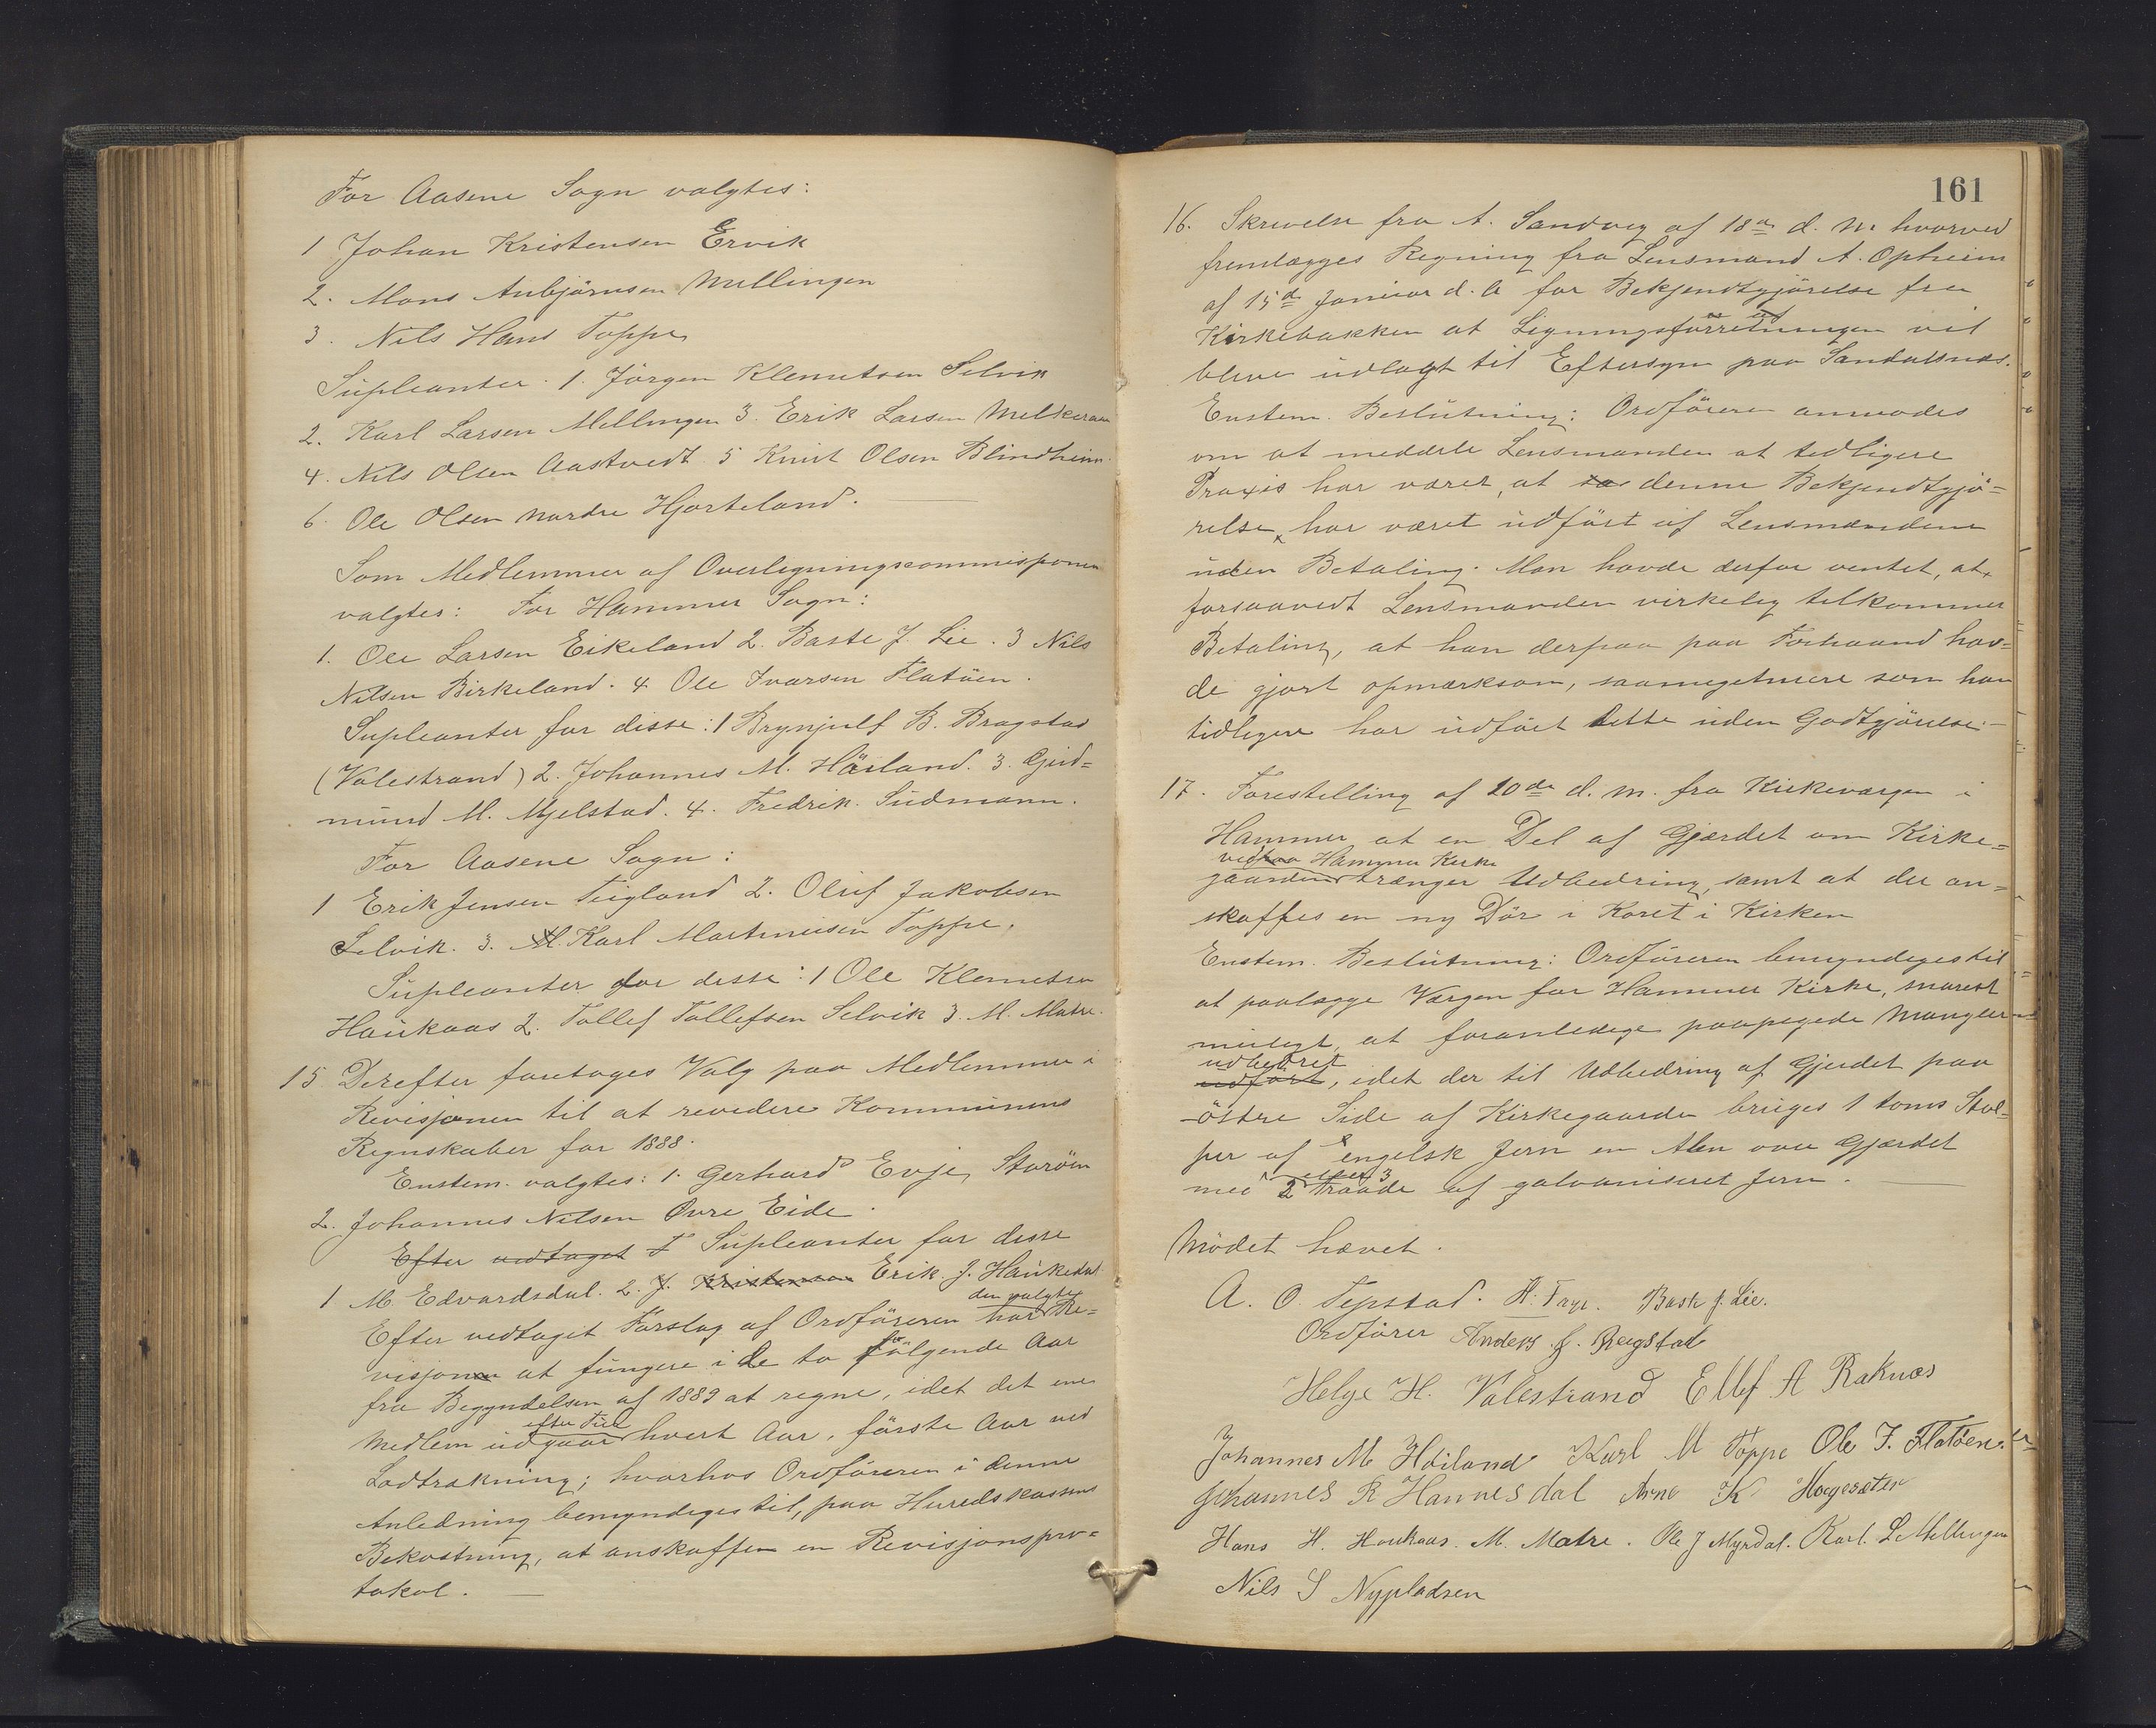 For Aasene Sogn valgtes:
1 Johan Kristensen Ervik
2. Mons Anbjörnsen Mellingen
3. Nils Hans Toppe
Supleanter. 1. Jörgen Klemetsen Selvik
2. Karl Larsen Mellingen 3. Erik Larsen Melkeraaen
4. Nils Olsen Aastvedt 5 Knut Olsen Blindheim
6. Ole Olsen nordre Hjorteland.
Som Medlemmer af Overligningscommissionen
valgtes: For Hammer Sogn:
1. Ole Larsen Eikeland 2. Baste J. Lie. 3 Nils
Nilsen Birkeland. 4 Ole Ivarsen Flatöen.
Supleanter for disse: 1 Brynjulf B. Brogstad
(Valestrand) 2. Johannes M. Höiland. 3. Gjud=
mund M. Mjelstad. 4. Fredrik Sudmann.
For Aasene Sogn:
1 Erik Jensen Teigland 2. Oluf Jakobsen
Selvik. 3. M. Karl Martinusen Toppe.
Supleanter for disse: 1 Ole Klemetsen
Haukaas 2. Tollef Tollefsen Selvik 3. M. Matre.
15 Derefter foretoges Valg paa Medlemmer i
Revisjonen til at revedere Kommunens
Regnskaber for 1888.
Enstem. valgtes: 1. Gerhard Evje, Storöen
2. Johannes Nilsen Övre Eide.
Efter vedtaget F Supleanter for disse
1 M. Edvardsdal. 2. J. Kristensen Erik J. Haukedal
den valgte
Efter vedtaget Forslag af Ordföreren har Re=
visjonen at fungere i de to følgende Aar
fra Begyndelsen af 1889 at regne, idet det ene
efter Tur
Medlem udgaar hvert Aar, förste Aar ved
Lodtrækning; hvorhos Ordföreren i denne
Anledning bemyndiges til, paa Heredskassens
Bekostning, at anskaffen en Revisjonspro=
tokol.
161
16. Skrivelse fra A. Sandvig af 18de d. M. hvorved
fremlægges Regning fra Lensmand A. Opheim
af 15de Januar d. A for Bekjendtgjörelse fra
Kirkebakken at Ligningsforretningen vil
blive udlagt til Eftersyn paa Sandalsnæs.
Enstem. Beslutning: Ordföreren anmodes
om at meddele Lensmanden at tidligere
Praxis har været, at saa denne Bekjendtgjö=
relse har været udfört af Lensmændene
uden Betaling. Man havde derfor ventet, at,
forsaavidt Lensmanden virkelig tilkommer
Betaling, at han derpaa paa Forhaand hav=
de gjort opmærksom, saameget mere som han
tidligere har udfört dette uden Godtgjörelse.
17. Forestilling af 20de d. M. fra Kirkeværgen i
Hammer at en Del af Gjærdet om Kirke=
ved Hammer Kirke
gaarden trænger Udbedring, samt at der an=
skaffes en ny Dör i Koret i Kirken
Enstem. Beslutning: Ordföreren bemyndiges til
at paalægge Værgen for Hammer Kirke, snarest
muligt, at foranledige paapegede Mangler
udbedret
udfört, idet der til Udbedring af Gjerdet paa
östre Side af Kirkegaarden bruges 1 toms Stol=
per af engelsk Jern en Alen over Gjærdet
eller 3
med 2 Traade af galvaniseret Jern.
Mödet hævet.
A. O. Tepstad. H. Frye. Baste J. Lie.
Ordfører Anders J. Reigstad
Helge H. Valestrand Ellef A Raknæs
Johannes M Höiland Karl M Toppe Ole I. Flatöen.
Johannes R Hannesdal Arne K Hogesæter
Hans H. Houkaas. M. Matre. Ole J Myrdal. Karl. L. Mellingen
Nils S Nypladsen